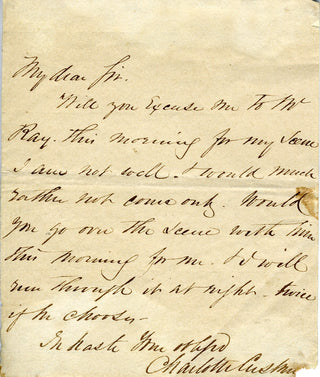 My dear Sir.
Will you Excuse me to Mr
Ray. this morning for my Scene
I am not well. I would much
rather not come out. Would
you go over the Scene with him
this morning for me. I will
run through it at night. twice
if he chooses –
In haste
Charlotte Cushm